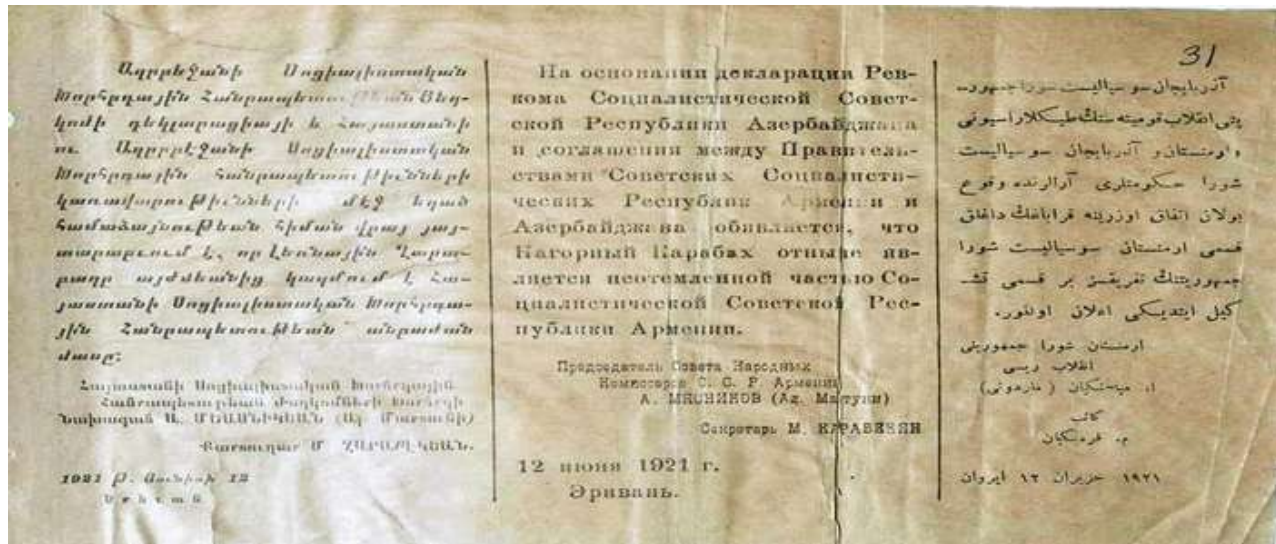 31
Ադրբեջանի Սոցիալիստական
Խորհրդային Հանրապետութեան Յեղ-
կոմի դեկլարացիայի և Հայաստանի
ու Ադրբէջանի Սոցիալիստական
Խորհրդային Հանրապետութիւնների
կառավարութիւնների մէջ եղած
համաձայնութեան հիման վրայ յայ-
տարարւում է, որ Լեռնային Ղարա-
բաղը այժմեանից կազմում է Հա-
յաստանի Սոցիալիստական Խորհրդա-
յին Հանրապետութեան անբաժան
մասը:
Հայաստանի Սոցիալիստական Խորհրդային
Հանրապետութեան Ժողկոմների Խորհրդի
Նախագահ Ալ. ՄԵԱՍՆԻԿԵԱՆ (Ալ. Մարտունի)
Քարտուղար Մ. ՂԱՐԱԲԵԿԵԱՆ.
1921 թ. Յունիսի 12
Երևան
На основании декларации Рев-
кома Социалистической Совет-
ской Республики Азербайджана
и соглашения между Правитель-
ствами Советских Социалисти-
ческих Республик Армении и
Азербайджана обявляется, что
Нагорный Карабах отныне яв-
ляется неотемленной частью Со-
циалистической Советской Рес-
публики Армении.
Председатель Совета Народных
Комиссаров С. С. Р. Армении
А. МЯСНИКОВ (Ал. Мартуни)
Секретарь М. КАРАБЕКЯН
12 июня 1921 г.
Эривань.
آذربایجان سوسیالیست شورا جمهوریـ
یتی انقلاب قومیته سنڭ دیکلاراسیونی
و ارمنستان و آذربایجان سوسیالیست
شورا حکومتلری آرالرنده وقوع
بولان اتفاق اوزرینه قراباغڭ داغلق
قسمی ارمنستان سوسیالیست شورا
جمهوریتنڭ تفریقسز بر قسمی تشـ
کیل ایتدیکی اعلان اولنور.
ارمنستان شورا جمهوریتی
انقلاب رئیسی
ا. میاسنکیان (مارتونی)
کاتب
م. قره‌بکیان
۱۹۲۱ حزیران ۱۲ ایروان